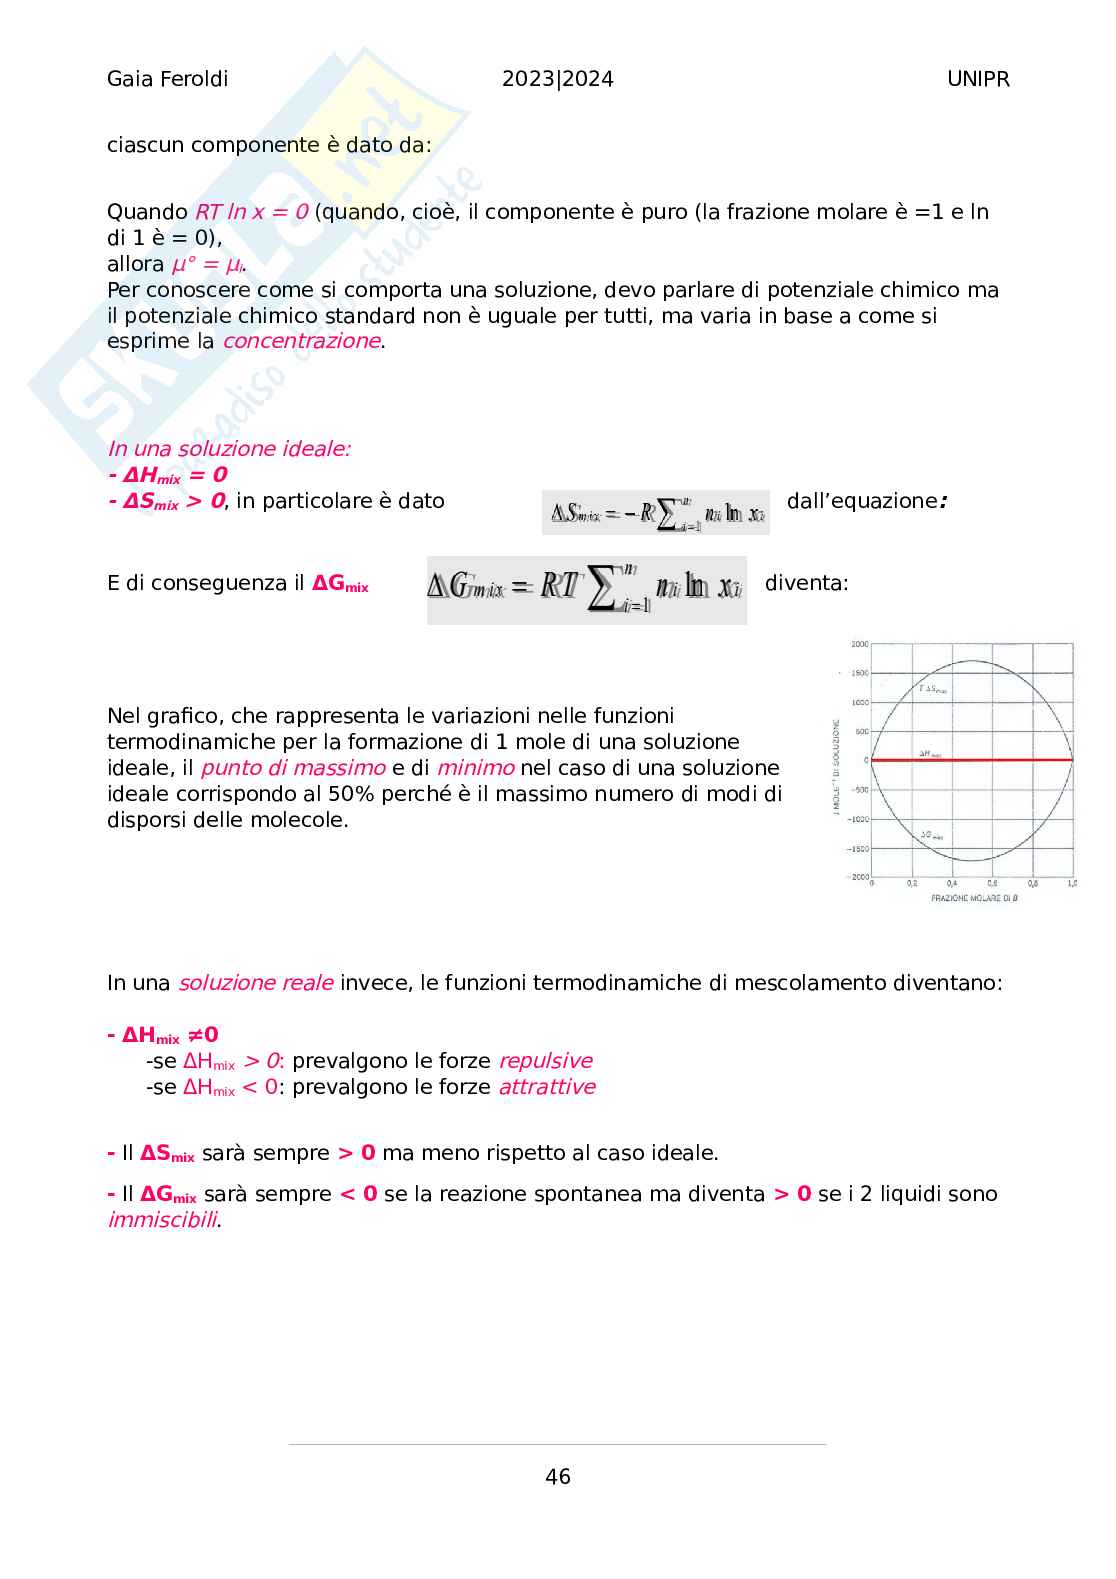 Gaia Feroldi 2023|2024 UNIPR
SKUOLA.net
paradiso dello studente
ciascun componente è dato da:
Quando RT ln x = 0 (quando, cioè, il componente è puro (la frazione molare è =1 e ln
di 1 è = 0),
allora μ° = μᵢ.
Per conoscere come si comporta una soluzione, devo parlare di potenziale chimico ma
il potenziale chimico standard non è uguale per tutti, ma varia in base a come si
esprime la concentrazione.
In una soluzione ideale:
- ΔHmix = 0
- ΔSmix > 0, in particolare è dato ΔSmix = − R∑ⁿᵢ₌₁ nᵢ ln xᵢ dall’equazione:
E di conseguenza il ΔGmix ΔGmix = RT ∑ⁿᵢ₌₁ nᵢ ln xᵢ diventa:
Nel grafico, che rappresenta le variazioni nelle funzioni
termodinamiche per la formazione di 1 mole di una soluzione
ideale, il punto di massimo e di minimo nel caso di una soluzione
ideale corrispondo al 50% perché è il massimo numero di modi di
disporsi delle molecole.
2000
1500
1000
500
0
−500
−1000
−1500
−2000
T ΔSmix
ΔHmix
ΔGmix
J MOLE⁻¹ DI SOLUZIONE
0 0,2 0,4 0,6 0,8 1,0
FRAZIONE MOLARE DI B
In una soluzione reale invece, le funzioni termodinamiche di mescolamento diventano:
- ΔHmix ≠0
-se ΔHmix > 0: prevalgono le forze repulsive
-se ΔHmix < 0: prevalgono le forze attrattive
- Il ΔSmix sarà sempre > 0 ma meno rispetto al caso ideale.
- Il ΔGmix sarà sempre < 0 se la reazione spontanea ma diventa > 0 se i 2 liquidi sono
immiscibili.
46